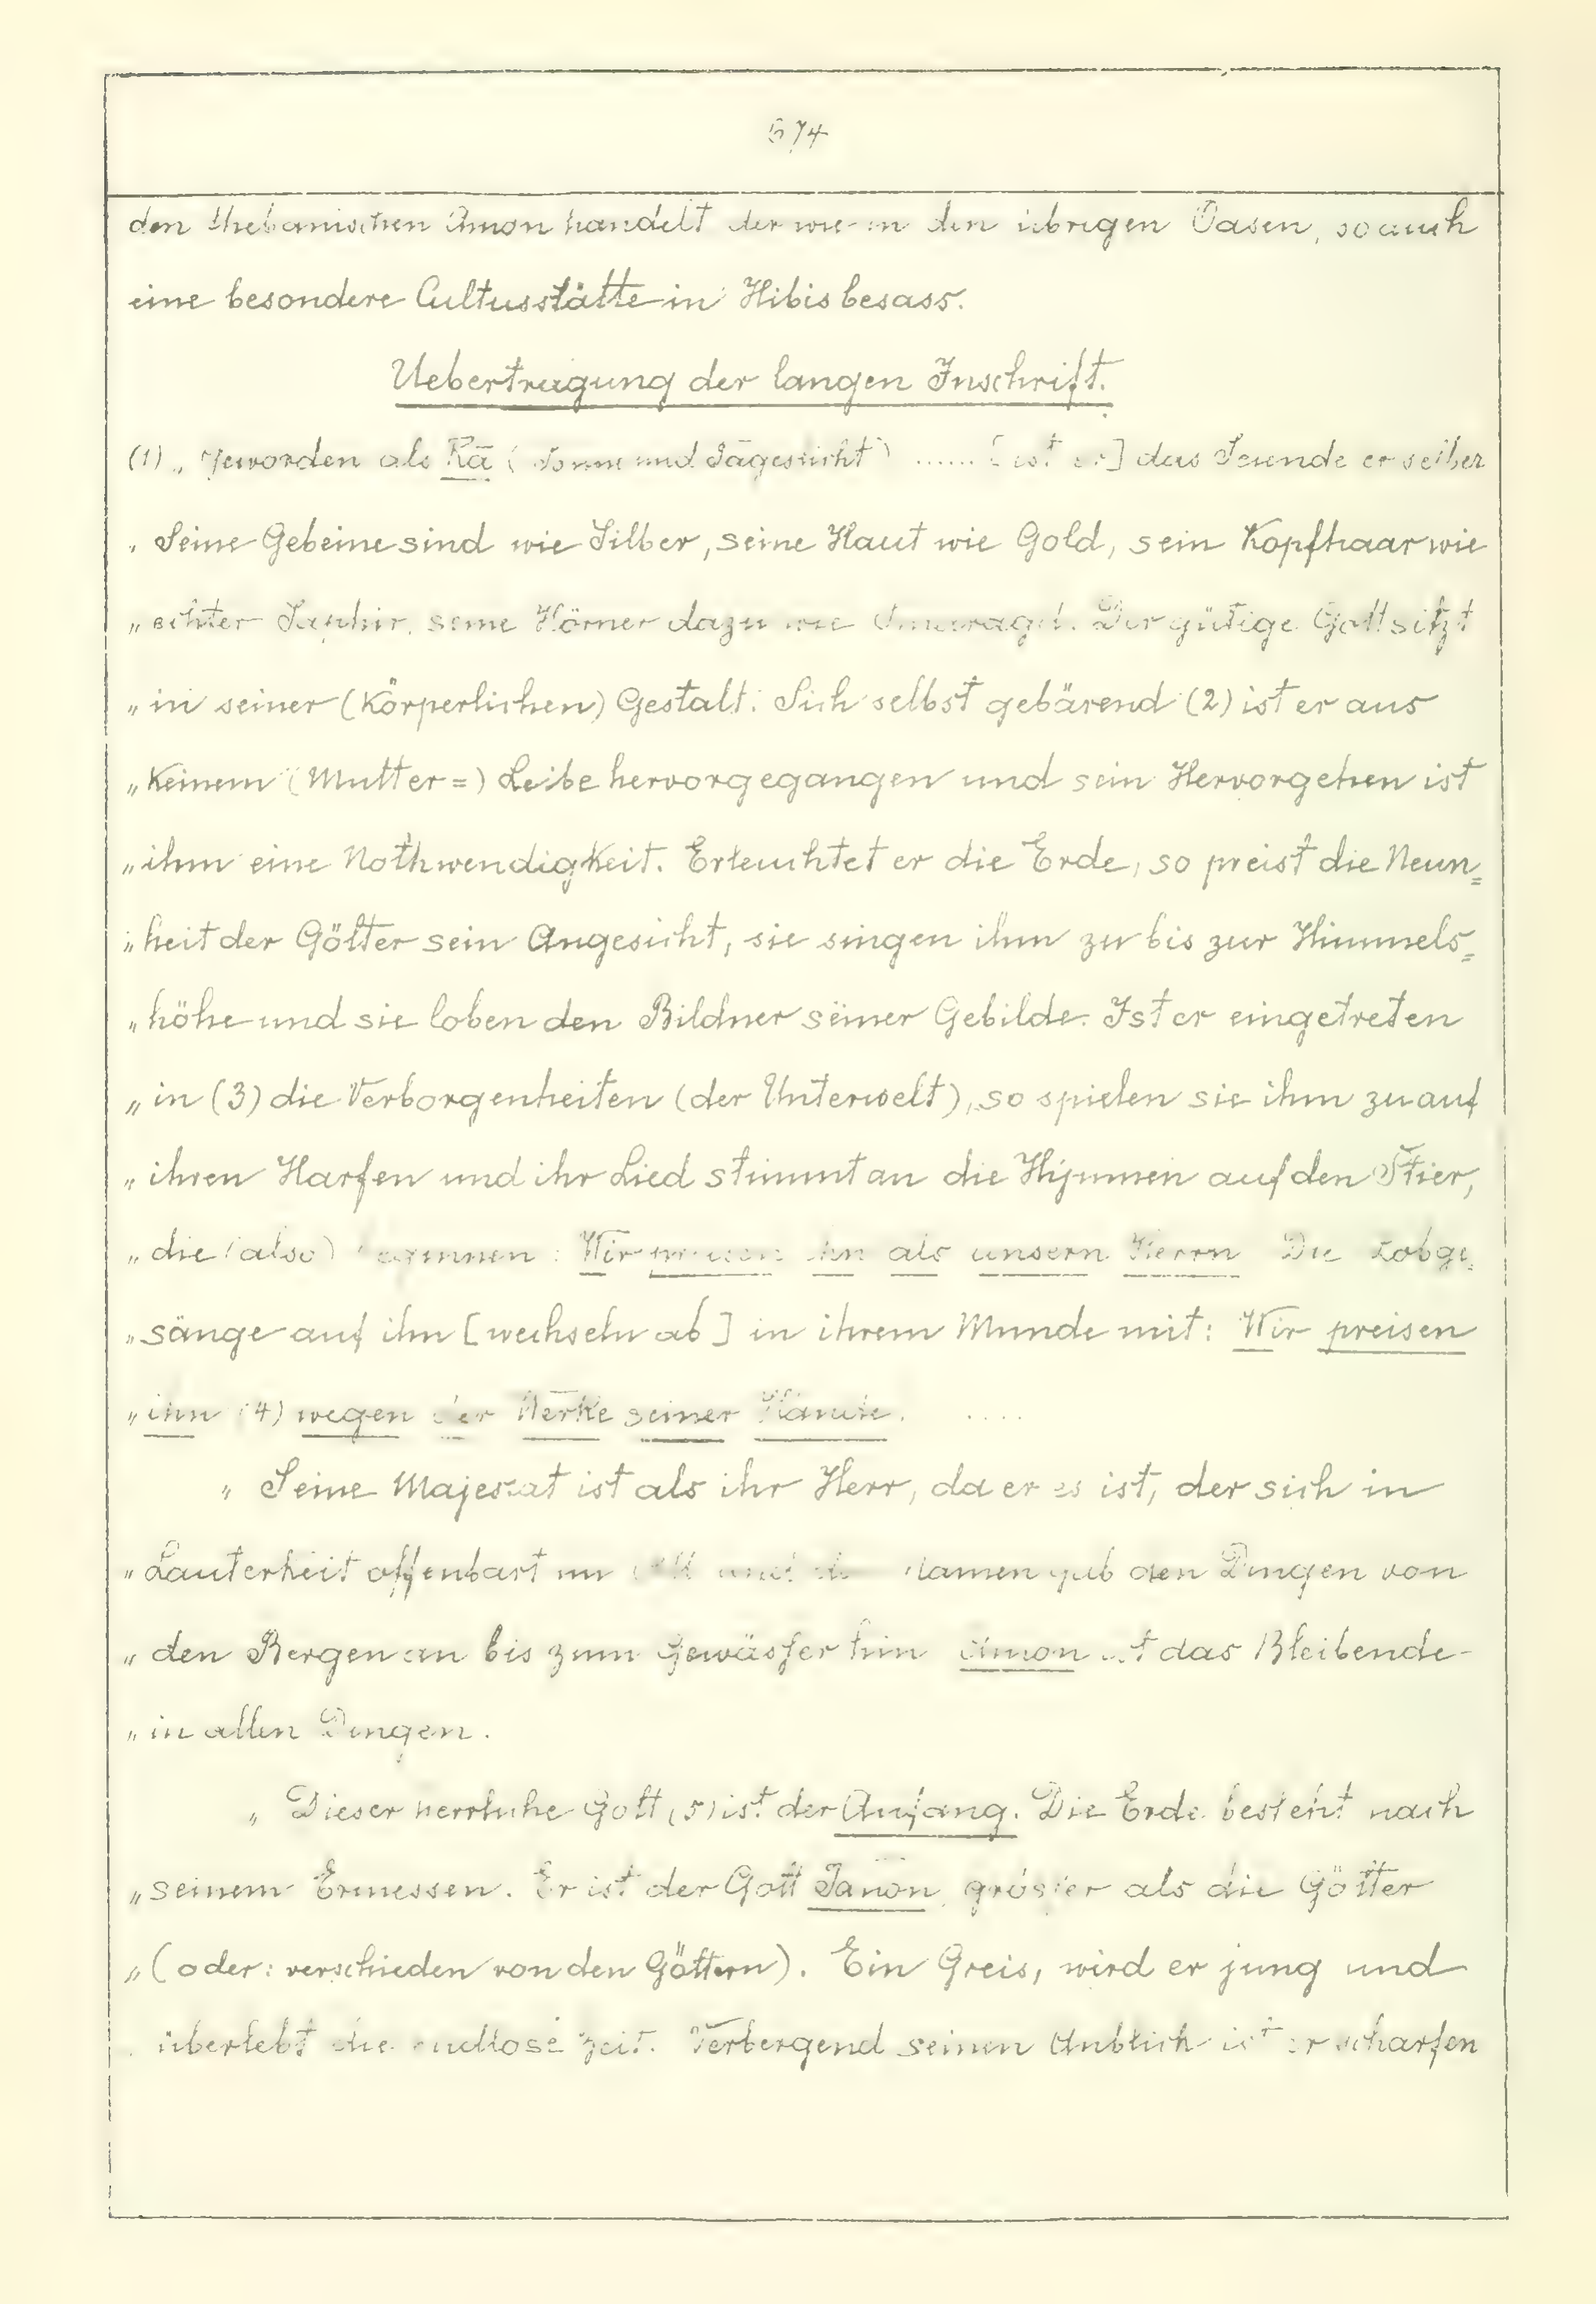 574
den thebanischen Amon handelt der wie in den übrigen Oasen, so auch
eine besondere Cultusstätte in Hibis besass.
Uebertragung der langen Inschrift.
(1) „Geworden als Rā (Sonne und Tageslicht) ...... [ist er] das Seiende er selber
„Seine Gebeine sind wie Silber, seine Haut wie Gold, sein Kopfhaar wie
„echter Saphir, seine Hörner dazu wie Smaragd. Der gütige Gott sitzt
„in seiner (körperlichen) Gestalt. Sich selbst gebärend (2) ist er aus
„keinem (Mutter=) Leibe hervorgegangen und sein Hervorgehen ist
„ihm eine Nothwendigkeit. Erleuchtet er die Erde, so preist die Neun=
„heit der Götter sein Angesicht, sie singen ihm zu bis zur Himmels=
„höhe und sie loben den Bildner seiner Gebilde. Ist er eingetreten
„in (3) die Verborgenheiten (der Unterwelt), so spielen sie ihm zu auf
„ihren Harfen und ihr Lied stimmt an die Hymnen auf den Stier,
„die (also) beginnen: Wir preisen ihn als unsern Herrn Die Lobge=
„sänge auf ihn [wechseln ab] in ihrem Munde mit: Wir preisen
„ihn (4) wegen der Werke seiner Hände. ....
„Seine Majestät ist als ihr Herr, da er es ist, der sich in
„Lauterkeit offenbart im und Namen gab den Dingen von
„den Bergen an bis zum Gewässer hin Amon ist das Bleibende
„in allen Dingen.
„Dieser herrliche Gott (5) ist der Anfang. Die Erde besteht nach
„seinem Ermessen. Er ist der Gott Tanon, grösser als die Götter
„(oder: verschieden von den Göttern). Ein Greis, wird er jung und
„überlebt die endlose Zeit. Verbergend seinen Anblick ist er scharfen